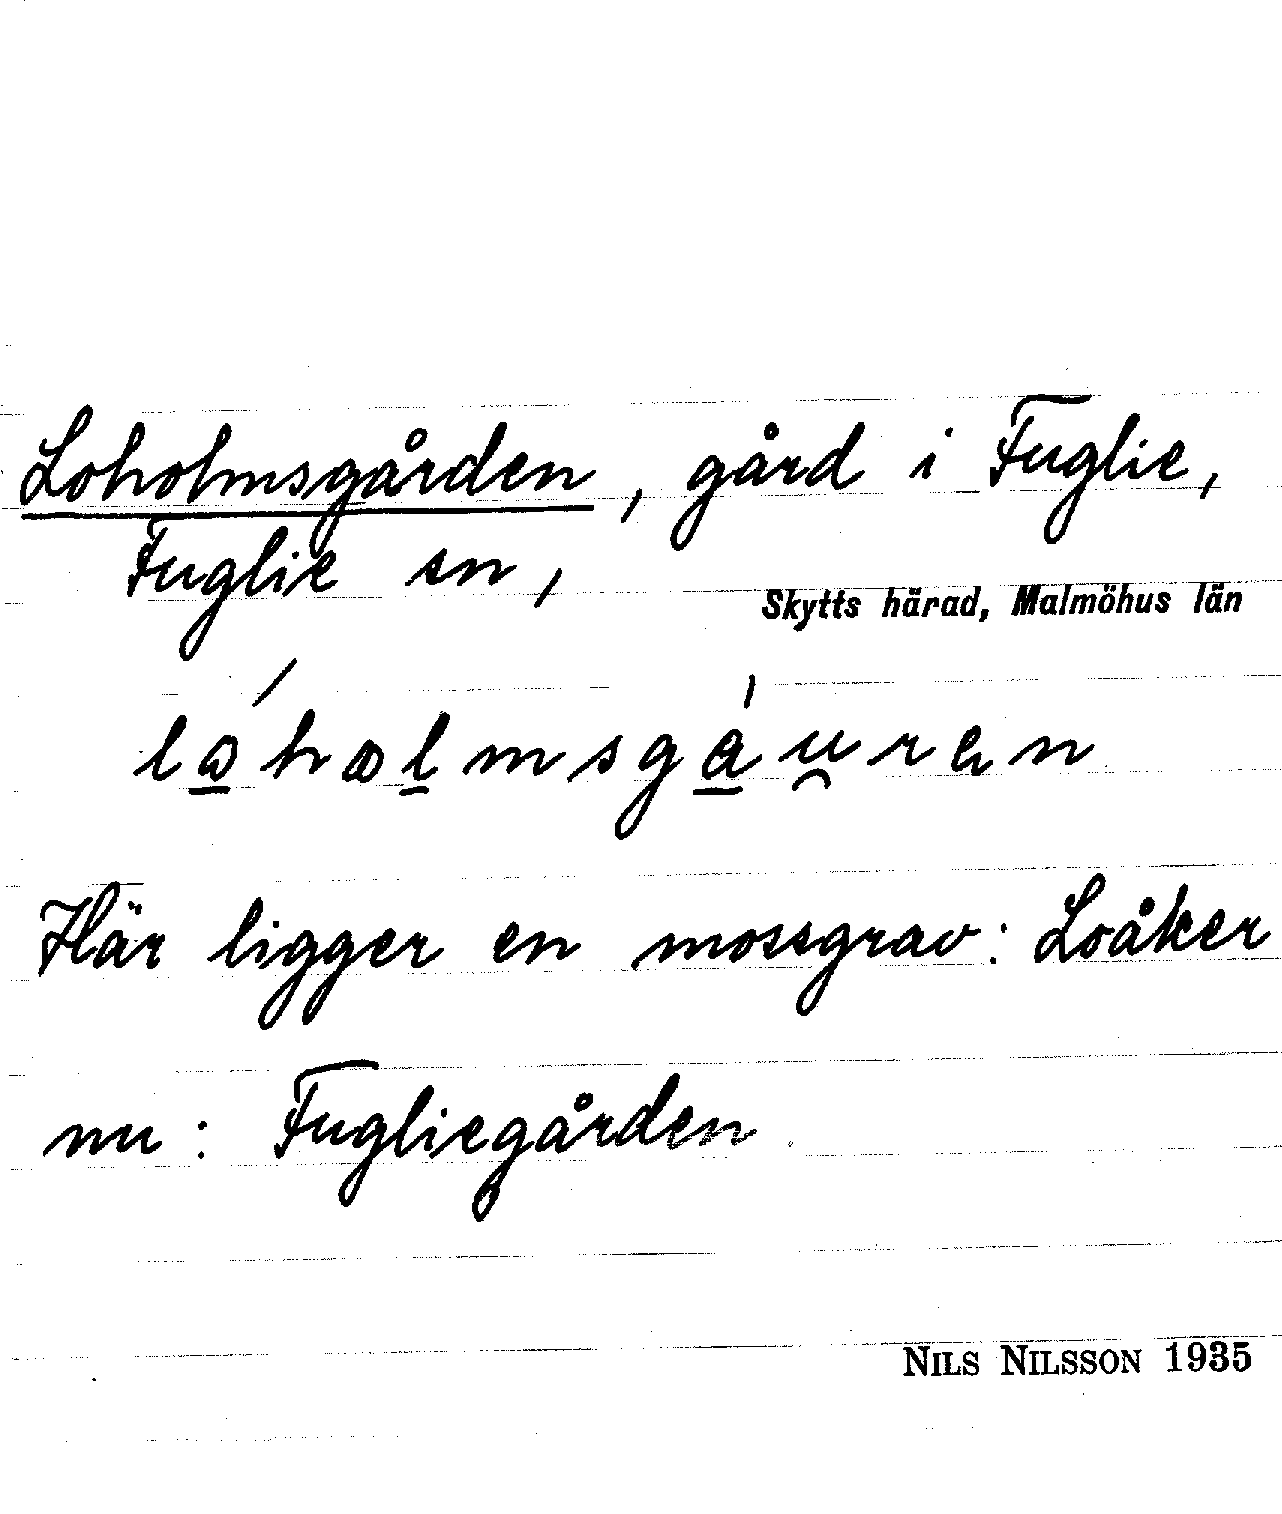 Loholmsgården, gård i Fuglie,
Fuglie sn,
Skytts härad, Malmöhus län
Här ligger en mossgrav: Loåker
nu: Fugliegården
NILS NILSSON 1935